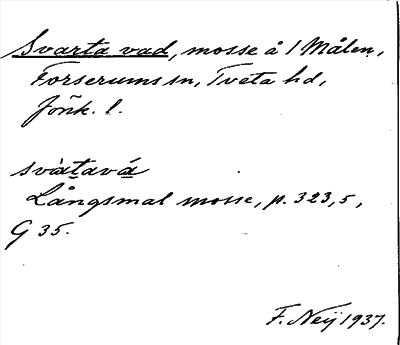 Svarta vad, mosse å 1 Målen,
Forserums sn, Tveta hd,
Jönk. l.
svàtavá
Långsmal mosse, p. 323,5,
G 35.
F. Neij 1937.